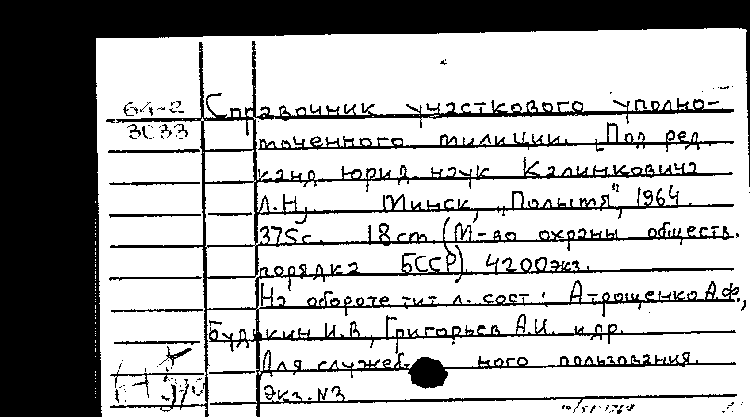 64-2 Справочник участкового уполно-
3633 моченного милиции. Под ред.
канд. юрид. наук Калинковича
Л.Н, Минск, „Полымя", 1964.
375с. 18см (М-во охраны обществ.
порядка БССР) 4200экз.
На обороте тит. л. сост: Атрощенко А.Ф.,
Будькин И.В, Григорьев А.И. и др.
Для служеб ного пользования.
Экз. N3